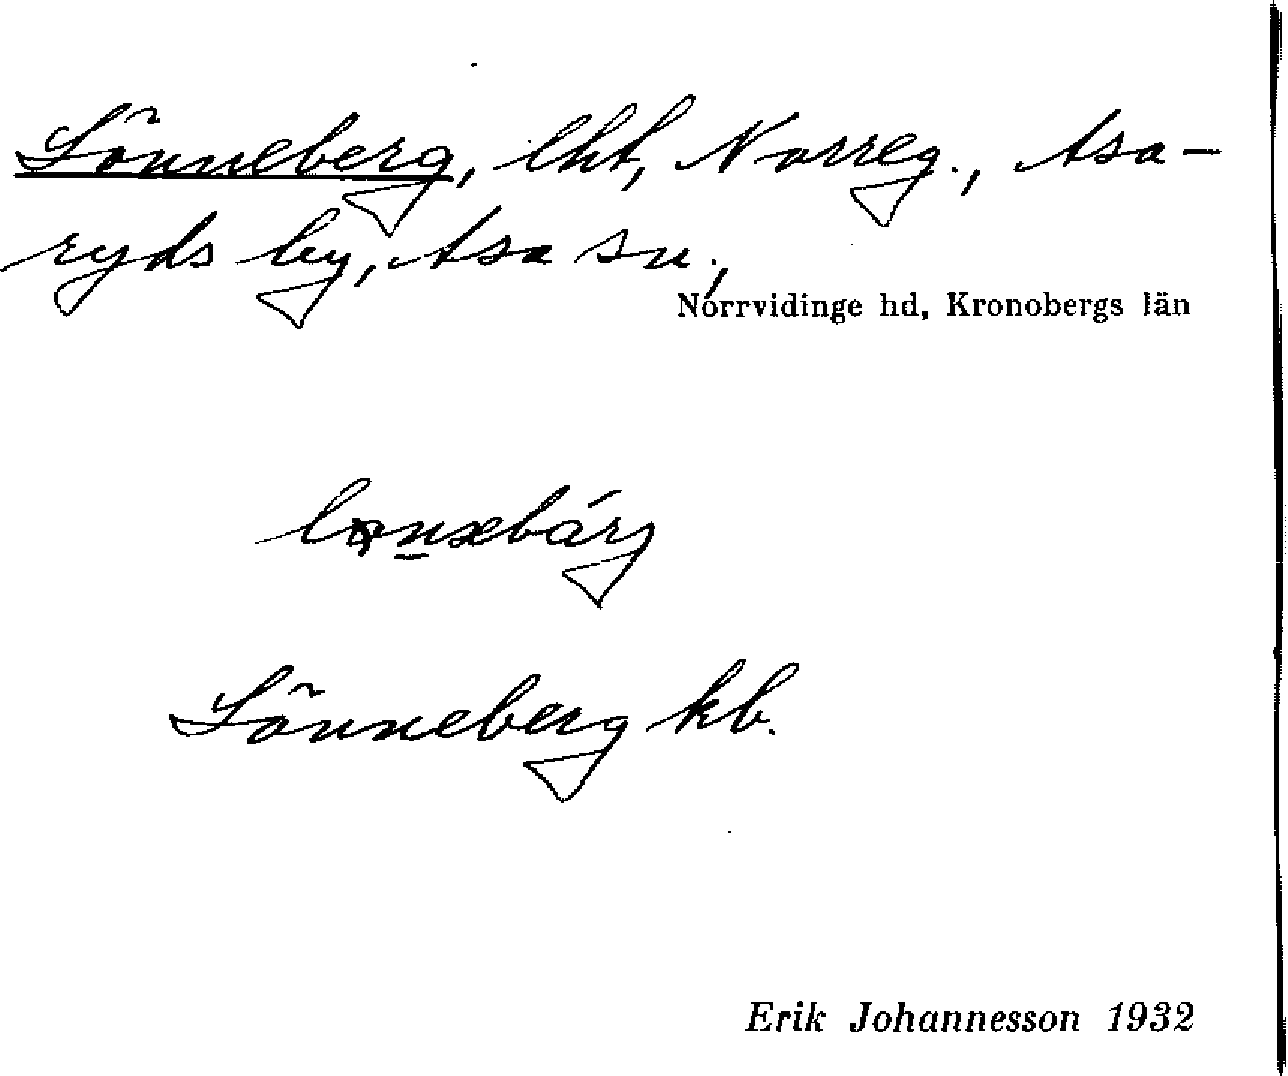 Lönneberg, lht, Norreg., Asa-
ryds by, Asa sn.,
Norrvidinge hd, Kronobergs län
Lönneberg kb.
Erik Johannesson 1932